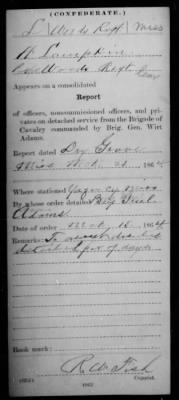 (CONFEDERATE.)
L Woods Regt Miss
Cav
Appears on a consolidated
Report
of officers, noncommissioned officers, and pri-
vates on detached service from the Brigade of
Cavalry commanded by Brig. Gen. Wirt
Adams.
Report dated Grove
Miss Mch 186
Where stationed Yazoo City Miss
By whose order detailed Brig Genl
Adams
Date of order Mch 16, 1864
Remarks: To
days
Book mark:
R W Fish
Copyist.